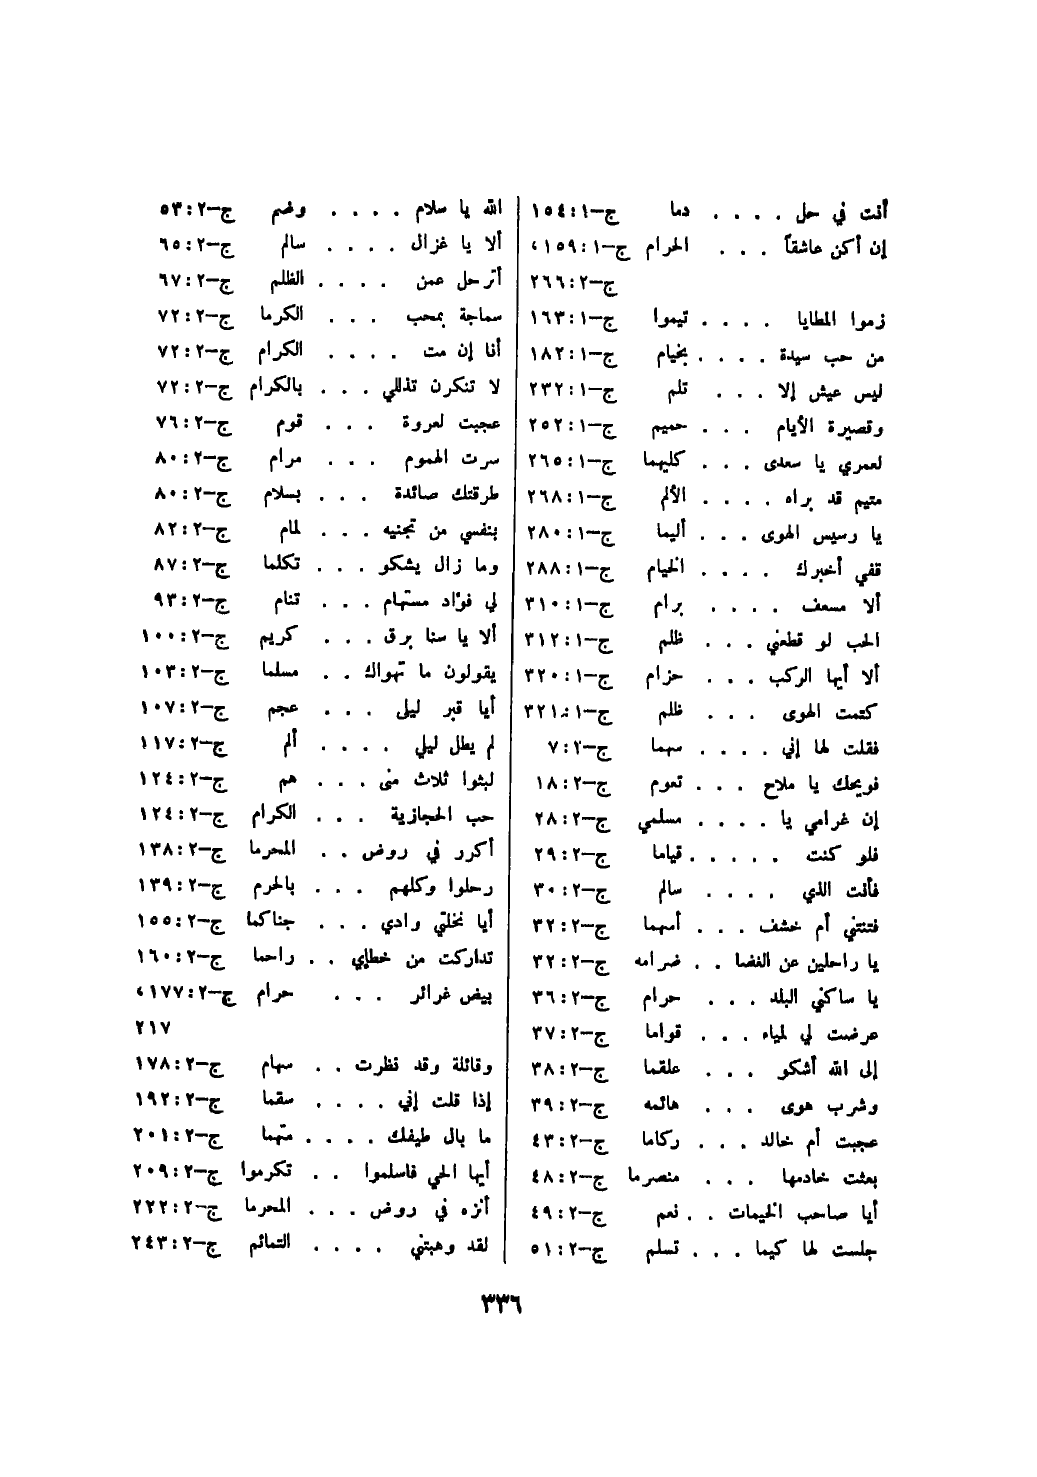 أنت في حل . . . . دما ج–١:١٥٤
إن أكن عاشقاً . . . الحرام ج–١:١٥٩،
ج–٢:٢٦٦
زموا المطايا . . . . تيموا ج–١:١٦٣
من حب سيدة . . . . بخيام ج–١:١٨٢
ليس عيش إلا . . . تلم ج–١:٢٣٢
وقصيرة الأيام . . . حميم ج–١:٢٥٢
لعمري يا سعدى . . . كليهما ج–١:٢٦٥
متيم قد براه . . . . الألم ج–١:٢٦٨
يا رسيس الهوى . . . أليما ج–١:٢٨٠
قفي أخبرك . . . . الخيام ج–١:٢٨٨
ألا مسعف . . . . برام ج–١:٣١٠
الحب لو قطعني . . . ظلم ج–١:٣١٢
ألا أيها الركب . . . حزام ج–١:٣٢٠
كتمت الهوى . . . ظلم ج–١:٣٢١
فقلت لها إني . . . . سهما ج–٢:٧
فويحك يا ملاح . . . تعوم ج–٢:١٨
إن غرامي يا . . . . مسلمي ج–٢:٢٨
فلو كنت . . . . . قياما ج–٢:٢٩
فأنت الذي . . . . سالم ج–٢:٣٠
فتنتني أم خشف . . . أسهما ج–٢:٣٢
يا راحلين عن الفضا . . ضرامه ج–٢:٣٢
يا ساكني البلد . . . حرام ج–٢:٣٦
عرضت لي لمياء . . . قواما ج–٢:٣٧
إلى الله أشكو . . . علقما ج–٢:٣٨
وشرب هوى . . . هائمه ج–٢:٣٩
عجبت أم خالد . . . ركاما ج–٢:٤٣
بعثت خادمها . . . منصرما ج–٢:٤٨
أيا صاحب الخيمات . . نعم ج–٢:٤٩
جلست لها كيما . . . تسلم ج–٢:٥١
الله يا سلام . . . . وضم ج–٢:٥٣
ألا يا غزال . . . . سالم ج–٢:٦٥
أترحل عمن . . . . الظلم ج–٢:٦٧
سماجة بمحب . . . الكرما ج–٢:٧٢
أنا إن مت . . . . الكرام ج–٢:٧٢
لا تنكرن تذللي . . . بالكرام ج–٢:٧٢
عجبت لعروة . . . قوم ج–٢:٧٦
سرت الهموم . . . مرام ج–٢:٨٠
طرقتك صائدة . . . بسلام ج–٢:٨٠
بنفسي من تجنيه . . . لمام ج–٢:٨٢
وما زال يشكو . . . تكلما ج–٢:٨٧
لي فؤاد مستهام . . . تنام ج–٢:٩٣
ألا يا سنا برق . . . كريم ج–٢:١٠٠
يقولون ما تهواك . . مسلما ج–٢:١٠٣
أيا قبر ليلى . . . عجم ج–٢:١٠٧
لم يطل ليلي . . . . ألم ج–٢:١١٧
لبثوا ثلاث منى . . . هم ج–٢:١٢٤
حب الحجازية . . . الكرام ج–٢:١٢٤
أكرر في روض . . المحرما ج–٢:١٣٨
رحلوا وكلهم . . . بالحرم ج–٢:١٣٩
أيا نخلتي وادي . . . جناكما ج–٢:١٥٥
تداركت من خطإي . . راحما ج–٢:١٦٠
بيض غرائر . . . حرام ج–٢:١٧٧،
٢١٧
وقائلة وقد نظرت . . سهام ج–٢:١٧٨
إذا قلت إني . . . . سقما ج–٢:١٩٢
ما بال طيفك . . . . متهما ج–٢:٢٠١
أيها الحي فاسلموا . . تكرموا ج–٢:٢٠٩
أنزه في روض . . . المحرما ج–٢:٢٢٢
لقد وهبتني . . . . التمائم ج–٢:٢٤٣
٣٣٦